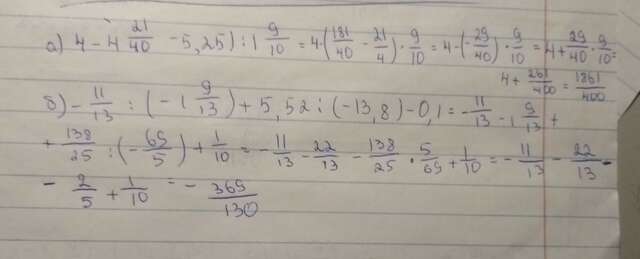 а) 4 - 4 21/40 - 5,25) : 1 9/10 = 4 · (181/40 - 21/4) · 9/10 = 4 - (-29/40) · 9/10 = 4 + 29/40 · 9/10 =
4 + 261/400 = 1861/400
б) - 11/13 : (-1 9/13) + 5,52 : (-13,8) - 0,1 = - 11/13 - 1 9/13 +
+ 138/25 : (- 69/5) + 1/10 = - 11/13 - 22/13 - 138/25 · 5/69 + 1/10 = - 11/13 - 22/13 -
- 2/5 + 1/10 = - 369/130